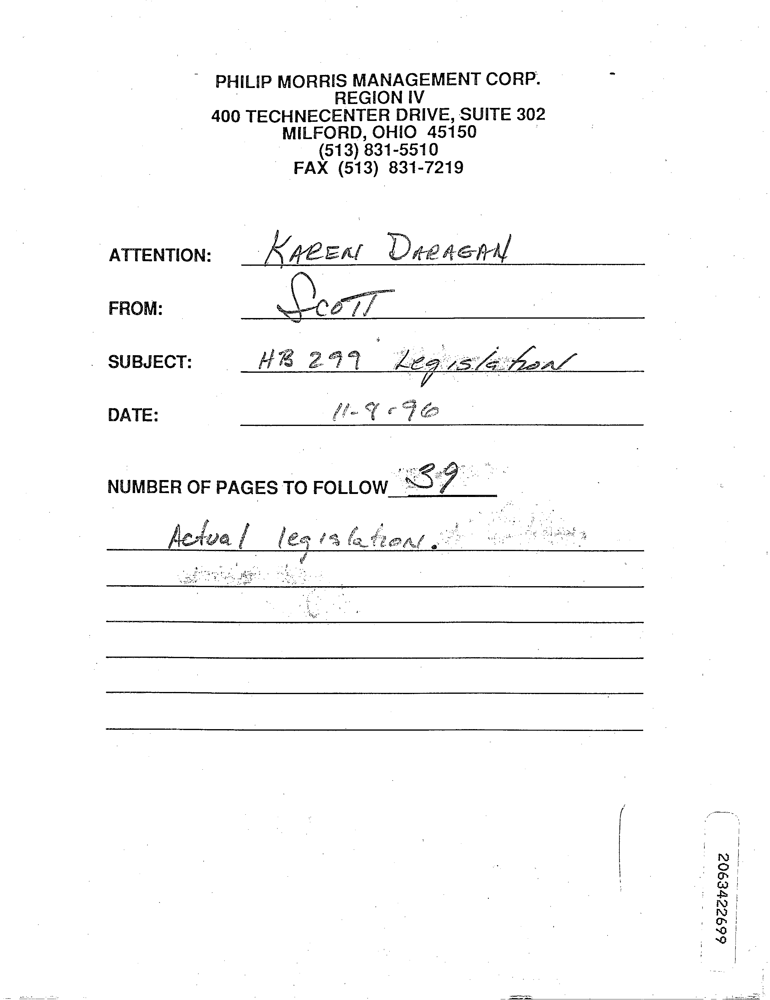 PHILIP MORRIS MANAGEMENT CORP.
REGION IV
400 TECHNECENTER DRIVE, SUITE 302
MILFORD, OHIO 45150
(513) 831-5510
FAX (513) 831-7219
ATTENTION: KAREN DARAGAN
FROM: SCOTT
SUBJECT: HB 299 Legislation
DATE: 11-8-96
NUMBER OF PAGES TO FOLLOW 39
Actual legislation.
2063422699